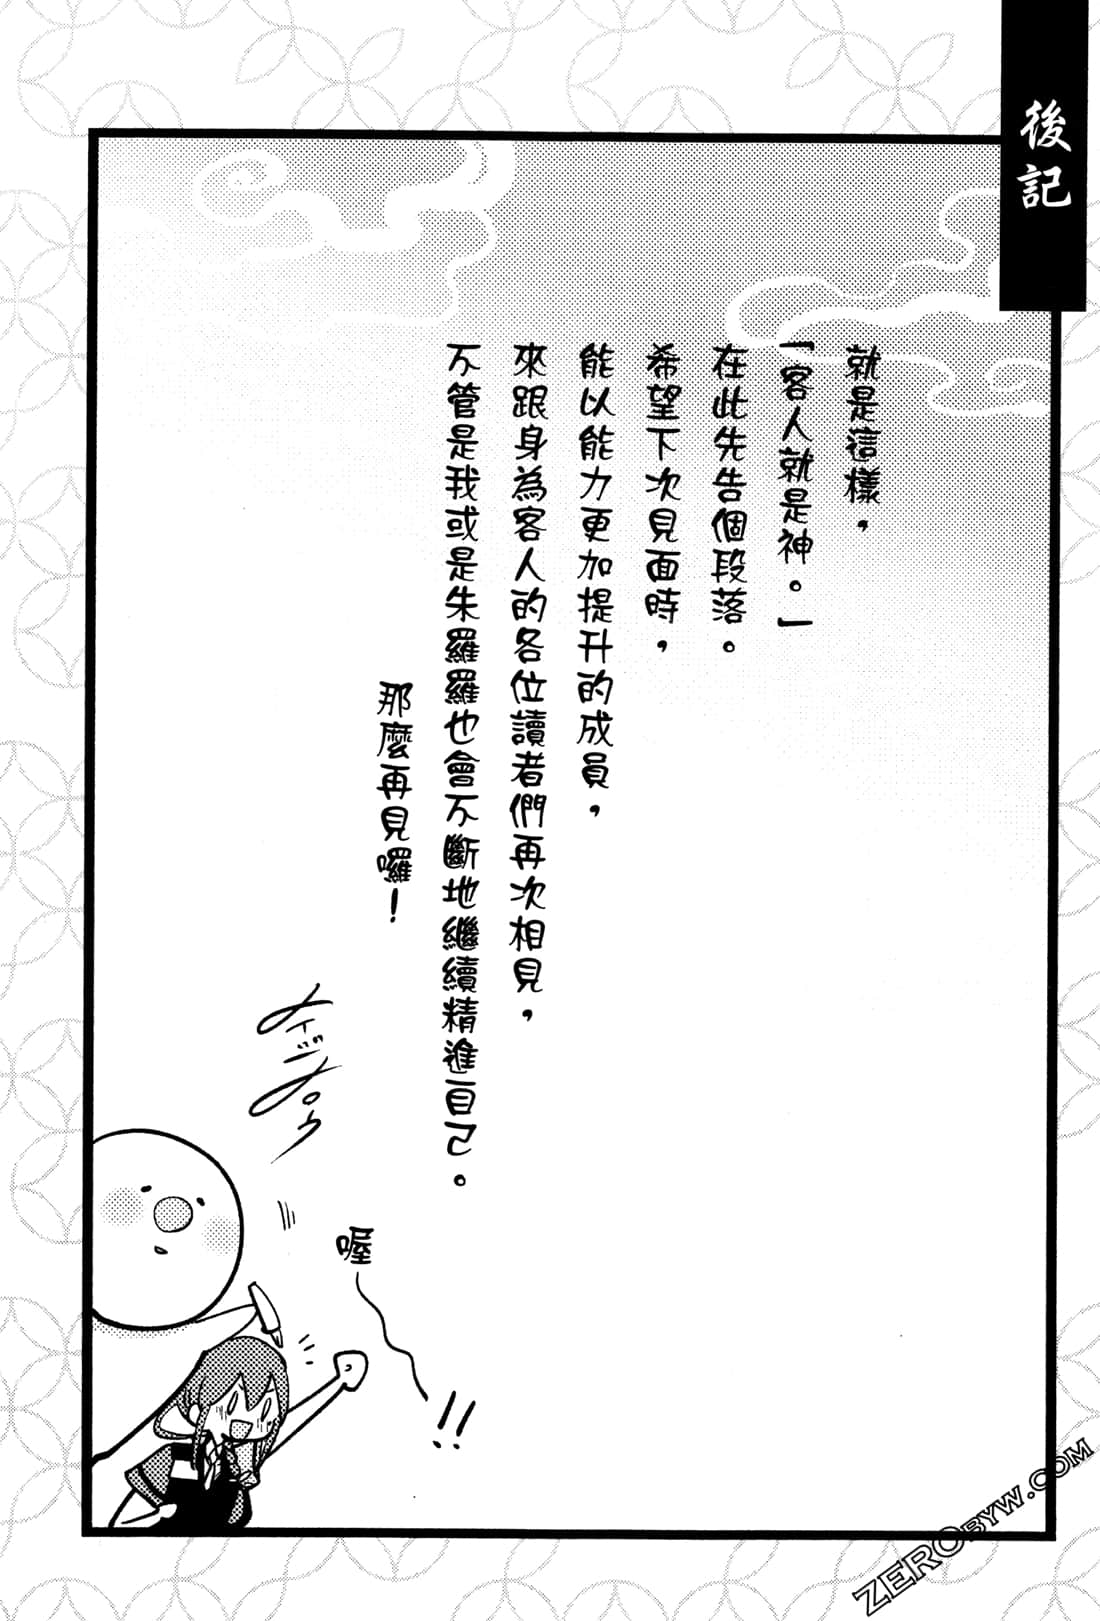 後記
就是這樣，
「客人就是神。」
在此先告個段落。
希望下次見面時，
能以能力更加提升的成員，
來跟身為客人的各位讀者們再次相見，
不管是我或是朱羅羅也會不斷地繼續精進自己。
那麼再見囉！
喔
!!
ZEROBYW.COM